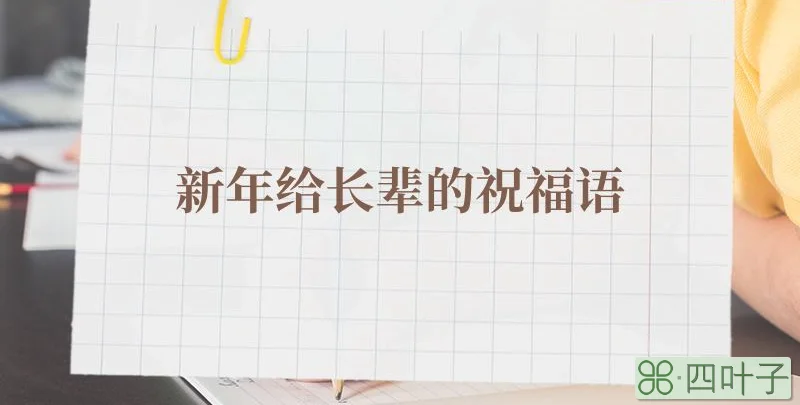 新年给长辈的祝福语
四叶子